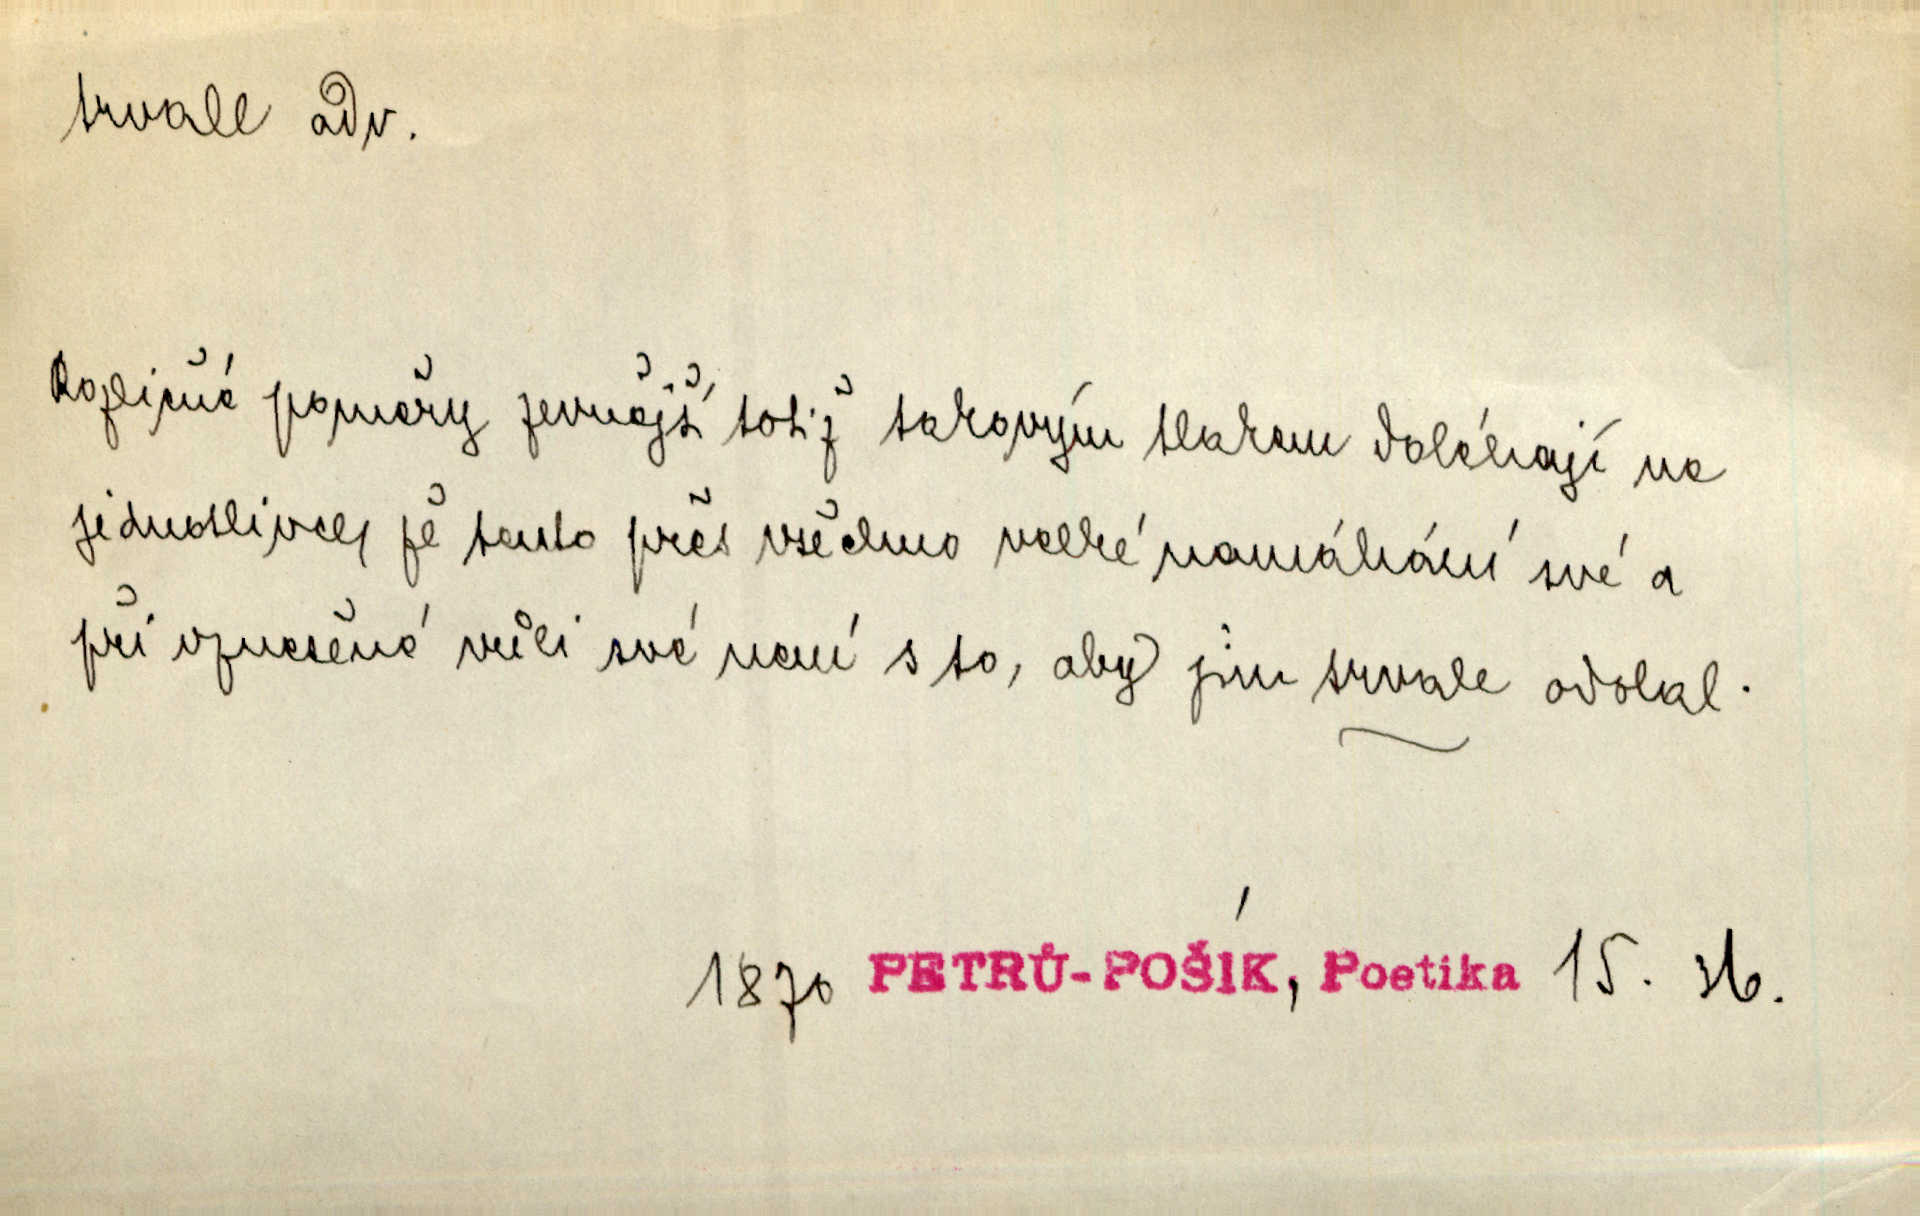 trvale adv.
Rozličné poměry zevnější totiž takovým tlakem doléhají na
jednotlivce, že tento přes všechno velké namáhání své a
při vznešené vůli své není s to, aby jim trvale odolal.
1870 PETRŮ-POŠÍK, Poetika 15. 36.